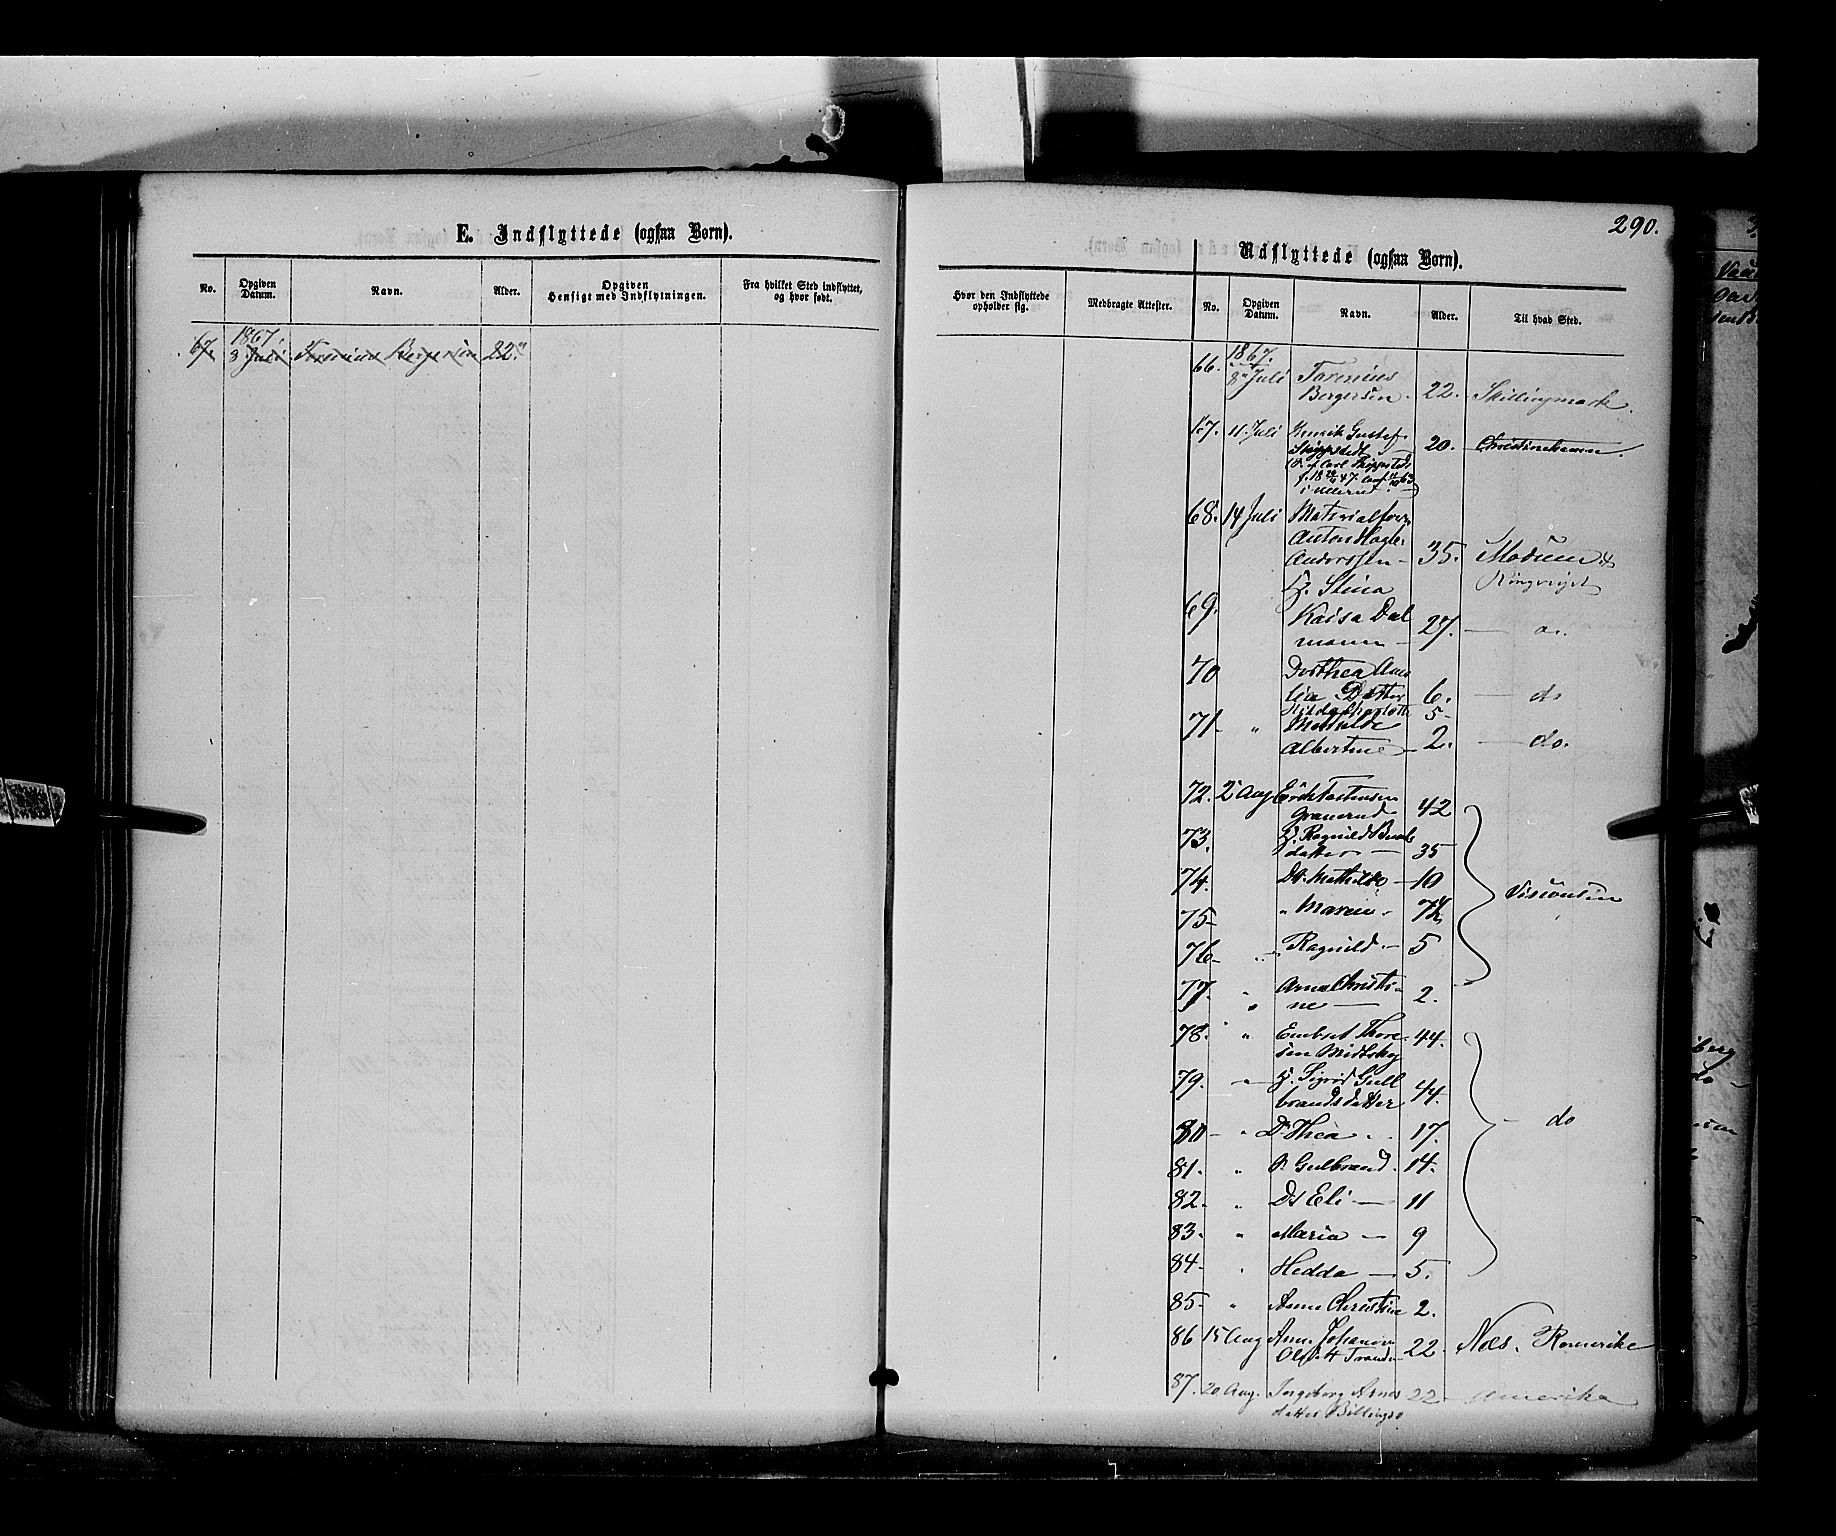 E. Indflyttede (ogsaa Børn).
No. Opgiven Datum. Navn. Alder. Opgiven Hensigt med Indflytningen. Fra hvilket Sted indflyttet, og hvor født.
1867.
67. 8 Juli Torenius Bergersen 22
290.
Udflyttede (ogsaa Børn).
Hvor den Indflyttede opholder sig. Medbragte Attester. No. Opgiven Datum. Navn. Alder. Til hvad Sted.
1867.
66. 8 Juli Torenius
Bergersen. 22. Skillingmark.
11 Juli Henrik Gustaf
20. Christinehamn.
68. 14 Juli Material
Anton
Anderssen 35. Modum
H. Stina
69. Kaisa Dal
mann 27.
70 Dorthea Ama
lia Datter 6. do
5
71 " Mathilde
Albertine 2. do.
72. 2 Aug Erik
Granerud 42
73. H. Ragnild
datter 35
74. Dt. Mathilde 10
75 " Maren
76 " Ragnild 5
77. " Anne Christi
ne 2.
78. " Embret Thore
sen Midtskog 44.
79. " H. Sigrid Gull
brandsdatter 44.
do
80 " Dt Thea 17.
81. " S. Gulbrand 14.
82. " Dt Eli 11
83. " Maria 9
84 " Hedda 5.
85. " Anne Christine 2.
86 15 Aug Ann. Johanne
22. Næs. Romerike
87. 20 Aug. Ingeborg Arnes
datter 22 Amerika